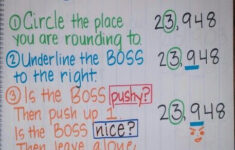 ①Circle the place
you are rounding to.
23,948
②Underline the BOSS
to the right.
23,948
③Is the BOSS pushy?
Then push up 1.
23,948
Is the BOSS nice?
Then leave alone